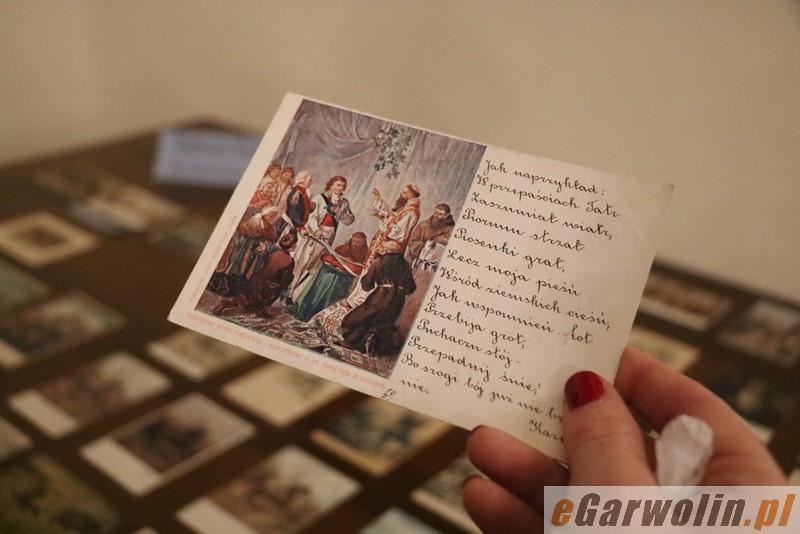 Jak naprzykład:
W przepaściach Tatr
Zaszumiał wiatr,
Piorunu strzał
Piosenki grał,
Lecz moja pieśń
Wśród ziemskich cieśń,
Jak wspomnień lot
Przebija grot,
Puchaczu stój —
Przepadnij śnie,
Bo srogi bój już nie
nie.
eGarwolin.pl